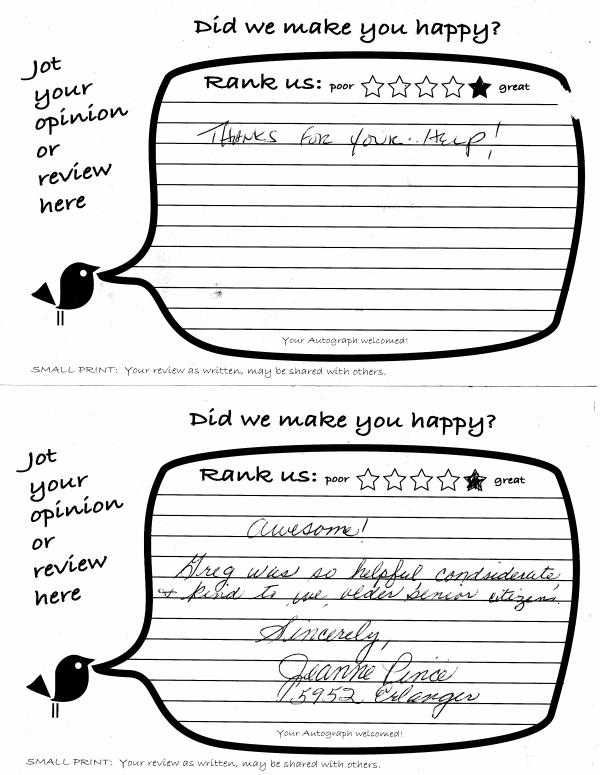 Did we make you happy?
Jot
your
opinion
or
review
here
Rank us: poor great
THANKS FOR YOUR HELP!
Your Autograph welcomed!
SMALL PRINT: Your review as written, may be shared with others.
Did we make you happy?
Jot
your
opinion
or
review
here
Rank us: poor great
Awesome!
Greg was so helpful condsiderate
& kind to we older senior citizens.
Sincerely,
Jeanne Pince
5952 Erlanger
Your Autograph welcomed!
SMALL PRINT: Your review as written, may be shared with others.